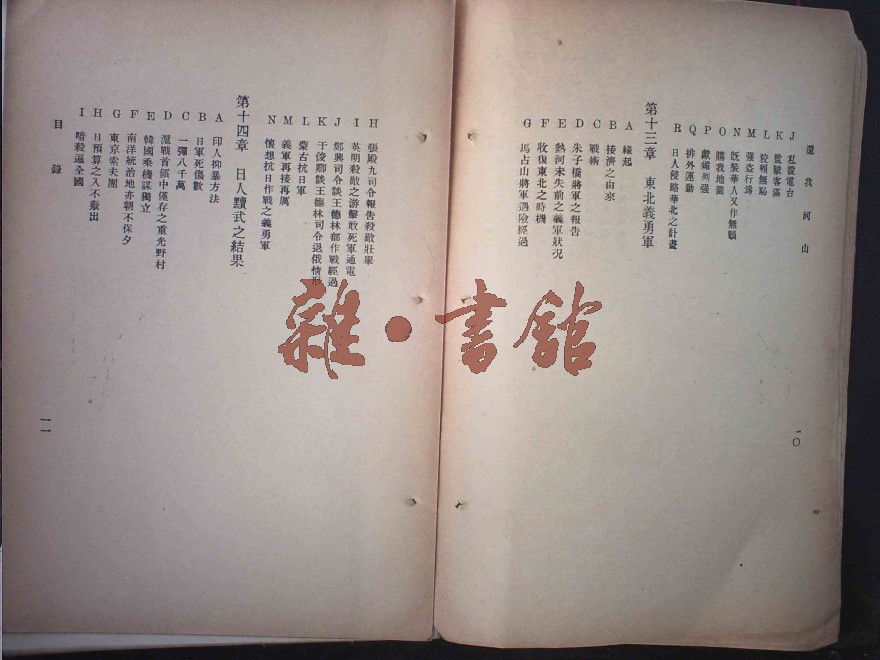 還我河山
J 私設電台
K 監獄客滿
L 狡賴無恥
M 強盜行爲
N 旣裝華人又作無賴
O 購我地圖
P 獻媚列强
Q 排外運動
R 日人侵略華北之計畫
第十三章 東北義勇軍
A 緣起
B 接濟之由來
C 戰術
D 朱子橋將軍之報告
E 熱河未失前之義軍狀況
F 收復東北之時機
G 馬占山將軍遇險經過
一〇
H 張殿九司令報告殺敵壯舉
I 英明殺敵之游擊敢死軍通電
J 鄭興司令談王德林部作戰經過
K 于俊卿談王德林司令退俄情形
L 蒙古抗日軍
M 義軍再接再厲
N 懷想抗日作戰之義勇軍
第十四章 日人黷武之結果
A 印人抑暴方法
B 日軍死傷數
C 一彈八千萬
D 滬戰首領中僅存之重光野村
E 韓國乘機謀獨立
F 南洋統治地亦朝不保夕
G 東京索夫團
H 日預算之入不敷出
I 暗殺逼全國
目錄
一一
雜·書館